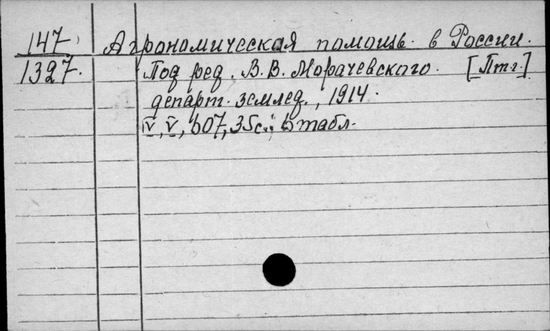 147 Агрономическая помощь в России.
1327. Под ред. В.В. Морачевского. [Птг.]
департ. землед., 1914.
V, V, 607, 35с.; табл.